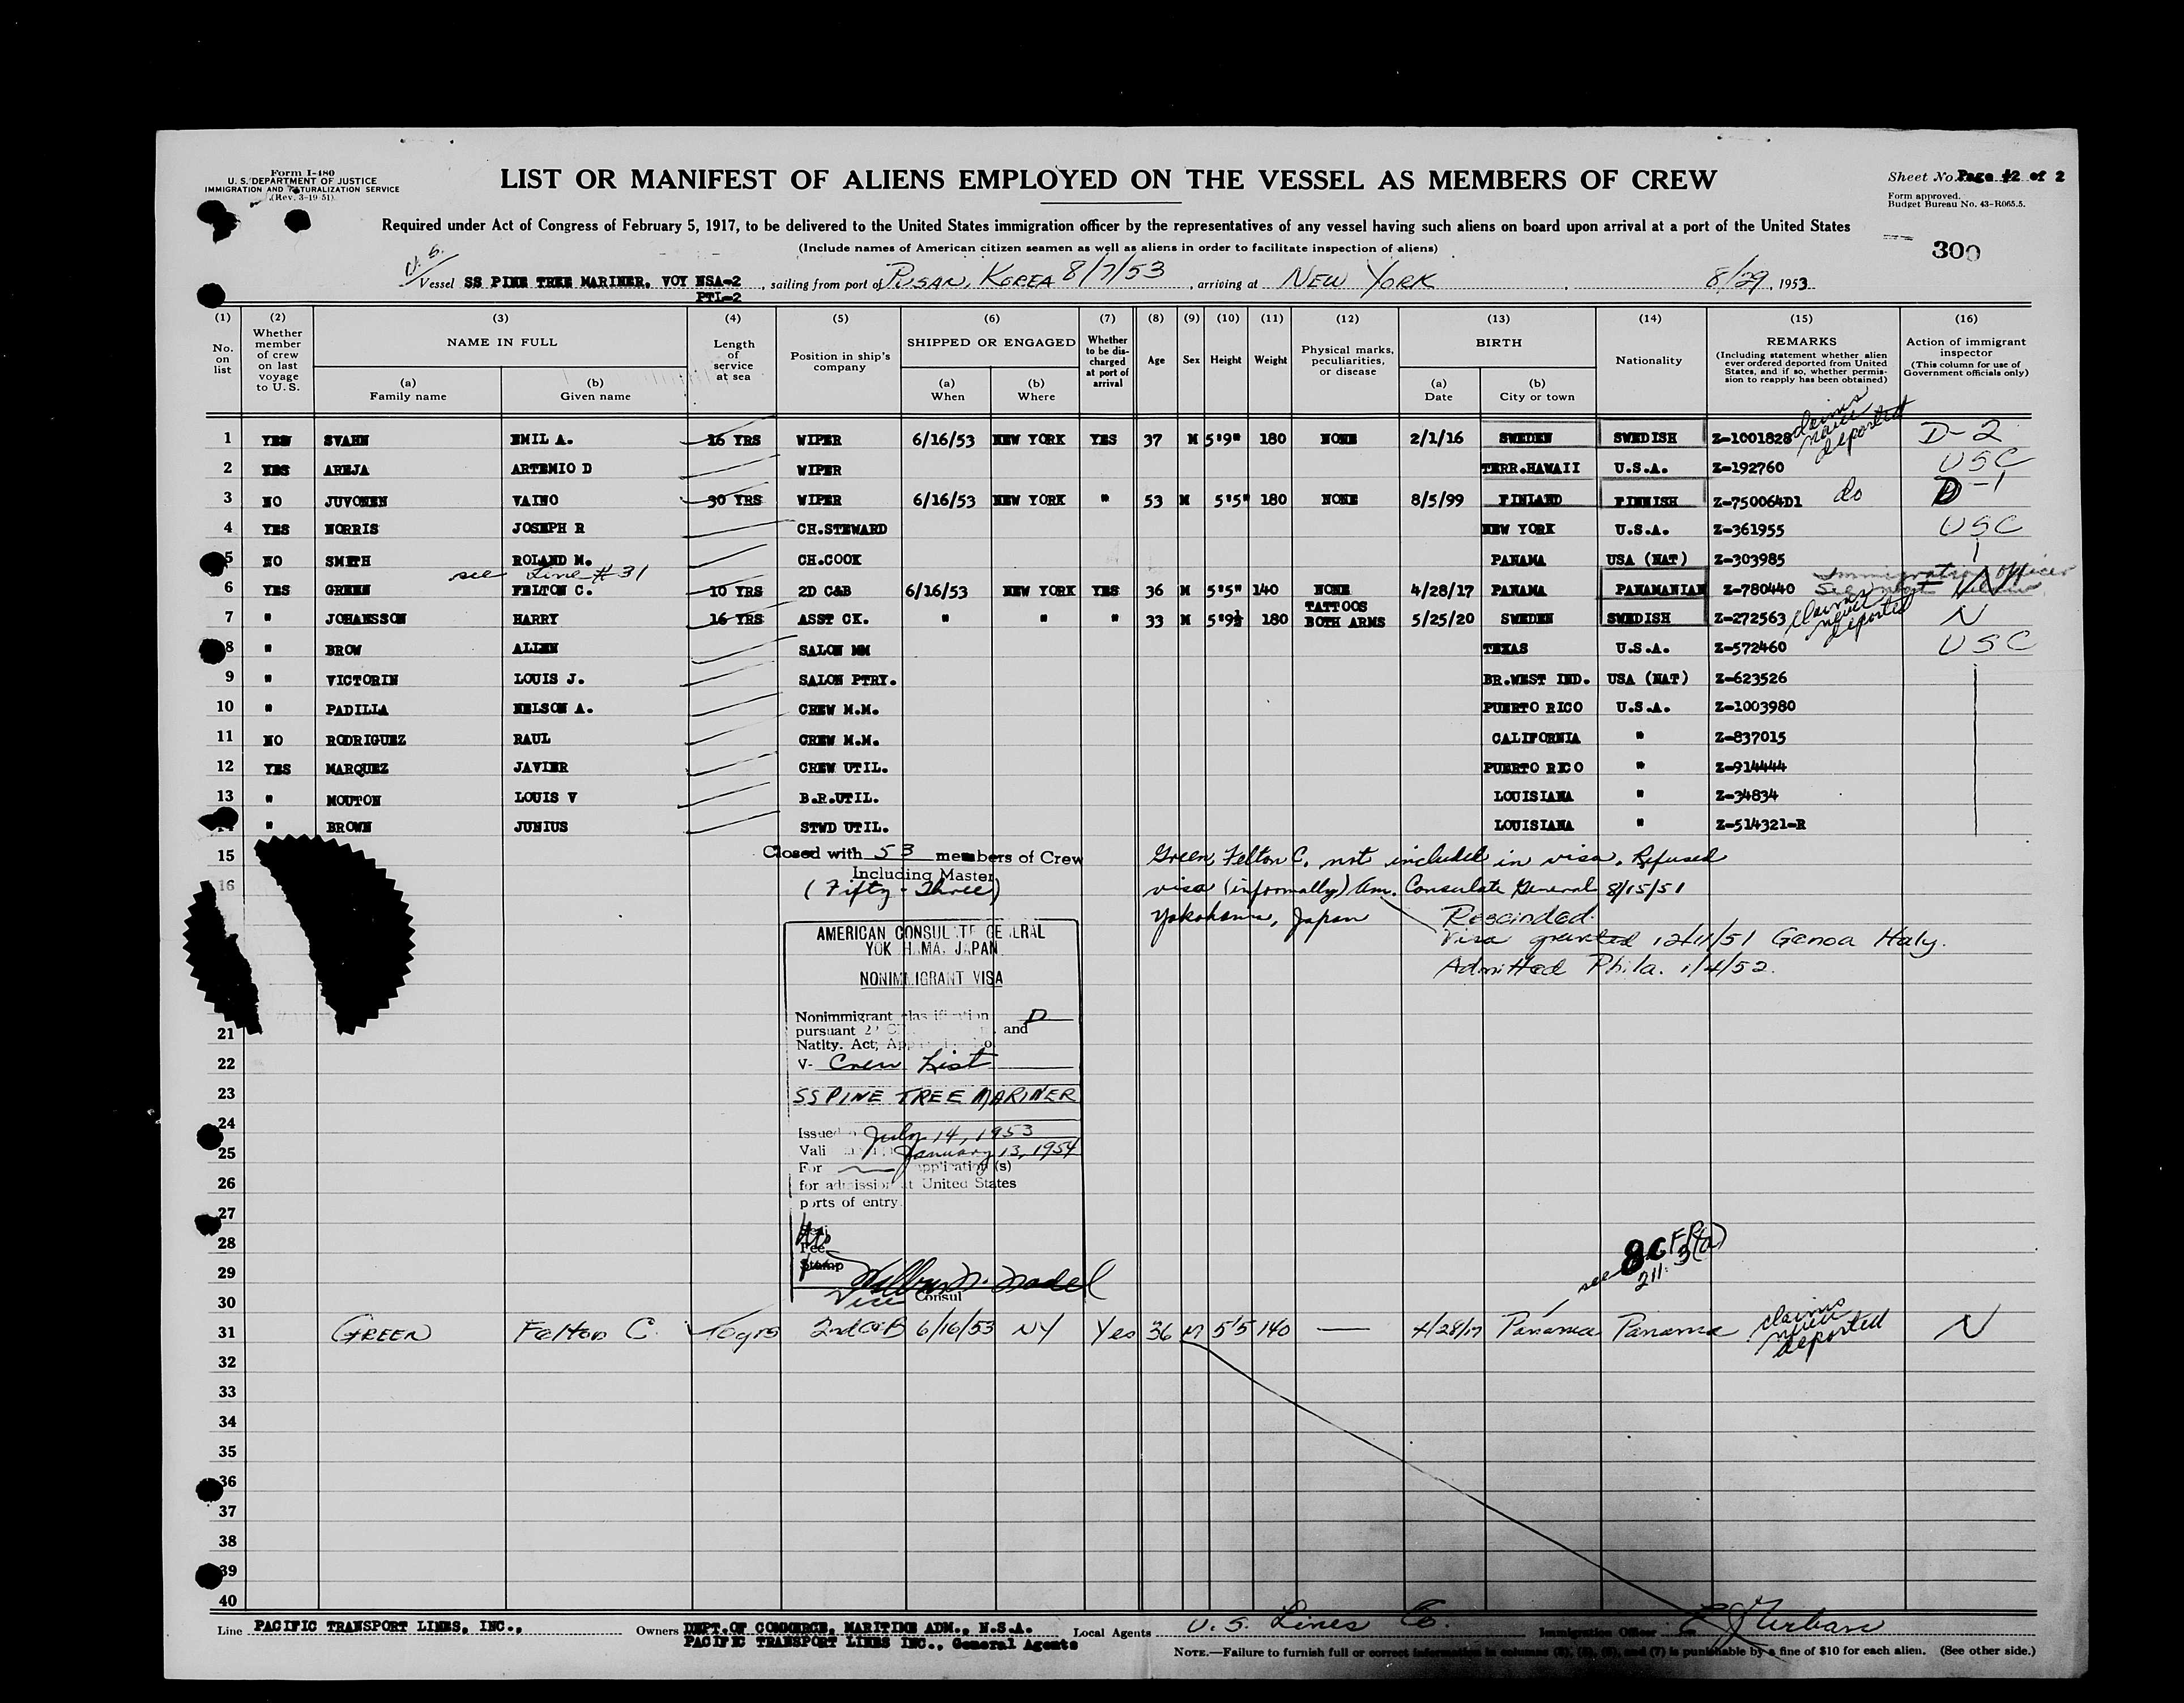 Form I-480
U. S. DEPARTMENT OF JUSTICE
IMMIGRATION AND NATURALIZATION SERVICE
(Rev. 3-19-51)
LIST OR MANIFEST OF ALIENS EMPLOYED ON THE VESSEL AS MEMBERS OF CREW
Sheet No. Page #2 of 2
Form approved.
Budget Bureau No. 43-R065.5.
Required under Act of Congress of February 5, 1917, to be delivered to the United States immigration officer by the representatives of any vessel having such aliens on board upon arrival at a port of the United States
(Include names of American citizen seamen as well as aliens in order to facilitate inspection of aliens)
300
U.S.
Vessel SS PINE TREE MARINER, VOY NSA-2 , sailing from port of PUSAN, KOREA 8/7/53 , arriving at NEW YORK , 8/29 , 1953
PTL-2
(1) (2) (3) (4) (5) (6) (7) (8) (9) (10) (11) (12) (13) (14) (15) (16)
No. on list
Whether member of crew on last voyage to U. S.
NAME IN FULL
(a) Family name
(b) Given name
Length of service at sea
Position in ship's company
SHIPPED OR ENGAGED
(a) When
(b) Where
Whether to be discharged at port of arrival
Age
Sex
Height
Weight
Physical marks, peculiarities, or disease
BIRTH
(a) Date
(b) City or town
Nationality
REMARKS
(Including statement whether alien ever ordered deported from United States, and if so, whether permission to reapply has been obtained)
Action of immigrant inspector
(This column for use of Government officials only)
1 YES SVAHN EMIL A. 16 YRS WIPER 6/16/53 NEW YORK YES 37 M 5'9" 180 NONE 2/1/16 SWEDEN SWEDISH Z-1001828 claims never deported D-2
2 YES AREJA ARTEMIO D WIPER TERR.HAWAII U.S.A. Z-192760 USC
3 NO JUVONEN VAINO 30 YRS WIPER 6/16/53 NEW YORK " 53 M 5'5" 180 NONE 8/5/99 FINLAND FINNISH Z-750064D1 do D-1
4 YES NORRIS JOSEPH R CH.STEWARD NEW YORK U.S.A. Z-361955 USC
5 NO SMITH ROLAND M. CH.COOK PANAMA USA (NAT) Z-303985
see Line #31
6 YES GREEN FELTON C. 10 YRS 2D C&B 6/16/53 NEW YORK YES 36 M 5'5" 140 NONE 4/28/17 PANAMA PANAMANIAN Z-780440 Immigration Officer N
7 " JOHANSSON HARRY 16 YRS ASST CK. " " " 33 M 5'9½ 180 TATTOOS BOTH ARMS 5/25/20 SWEDEN SWEDISH Z-272563 claims never deported N
8 " BROW ALLEN SALON MM TEXAS U.S.A. Z-572460 USC
9 " VICTORIN LOUIS J. SALON PTRY. BR.WEST IND. USA (NAT) Z-623526
10 " PADILLA NELSON A. CREW M.M. PUERTO RICO U.S.A. Z-1003980
11 NO RODRIGUEZ RAUL CREW M.M. CALIFORNIA " Z-837015
12 YES MARQUEZ JAVIER CREW UTIL. PUERTO RICO " Z-914444
13 " MOUTON LOUIS V B.R.UTIL. LOUISIANA " Z-34834
14 " BROWN JUNIUS STWD UTIL. LOUISIANA " Z-514321-R
15 Closed with 53 members of Crew Green, Felton C. not included in visa. Refused
Including Master
16 (Fifty-Three) visa (informally) Am. Consulate General 8/15/51
Yokohama, Japan
Rescinded.
Visa granted 12/11/51 Genoa Italy.
Admitted Phila. 1/4/52.
AMERICAN CONSULATE GENERAL
YOKOHAMA, JAPAN
NONIMMIGRANT VISA
Nonimmigrant classification D
pursuant and
Natlty. Act; App
V- Crew List
SS PINE TREE MARINER
Issued July 14, 1953
Vali January 13, 1954
For application(s)
for admission at United States
ports of entry.
Fee
Stamp
Vice Consul
21
22
23
24
25
26
27
28
29
30
see 8 CFR 211.3(a)
31 GREEN Felton C. 10 yrs 2nd C&B 6/16/53 NY Yes 36 M 5'5 140 — 4/28/17 Panama Panama claims never deported N
32
33
34
35
36
37
38
39
40
Line PACIFIC TRANSPORT LINES, INC., Owners DEPT.OF COMMERCE, MARITIME ADM., N.S.A. Local Agents U.S. Lines Co. Immigration Officer
PACIFIC TRANSPORT LINES INC., General Agents
NOTE.—Failure to furnish full or correct information in columns (3), (5), (6), and (7) is punishable by a fine of $10 for each alien. (See other side.)